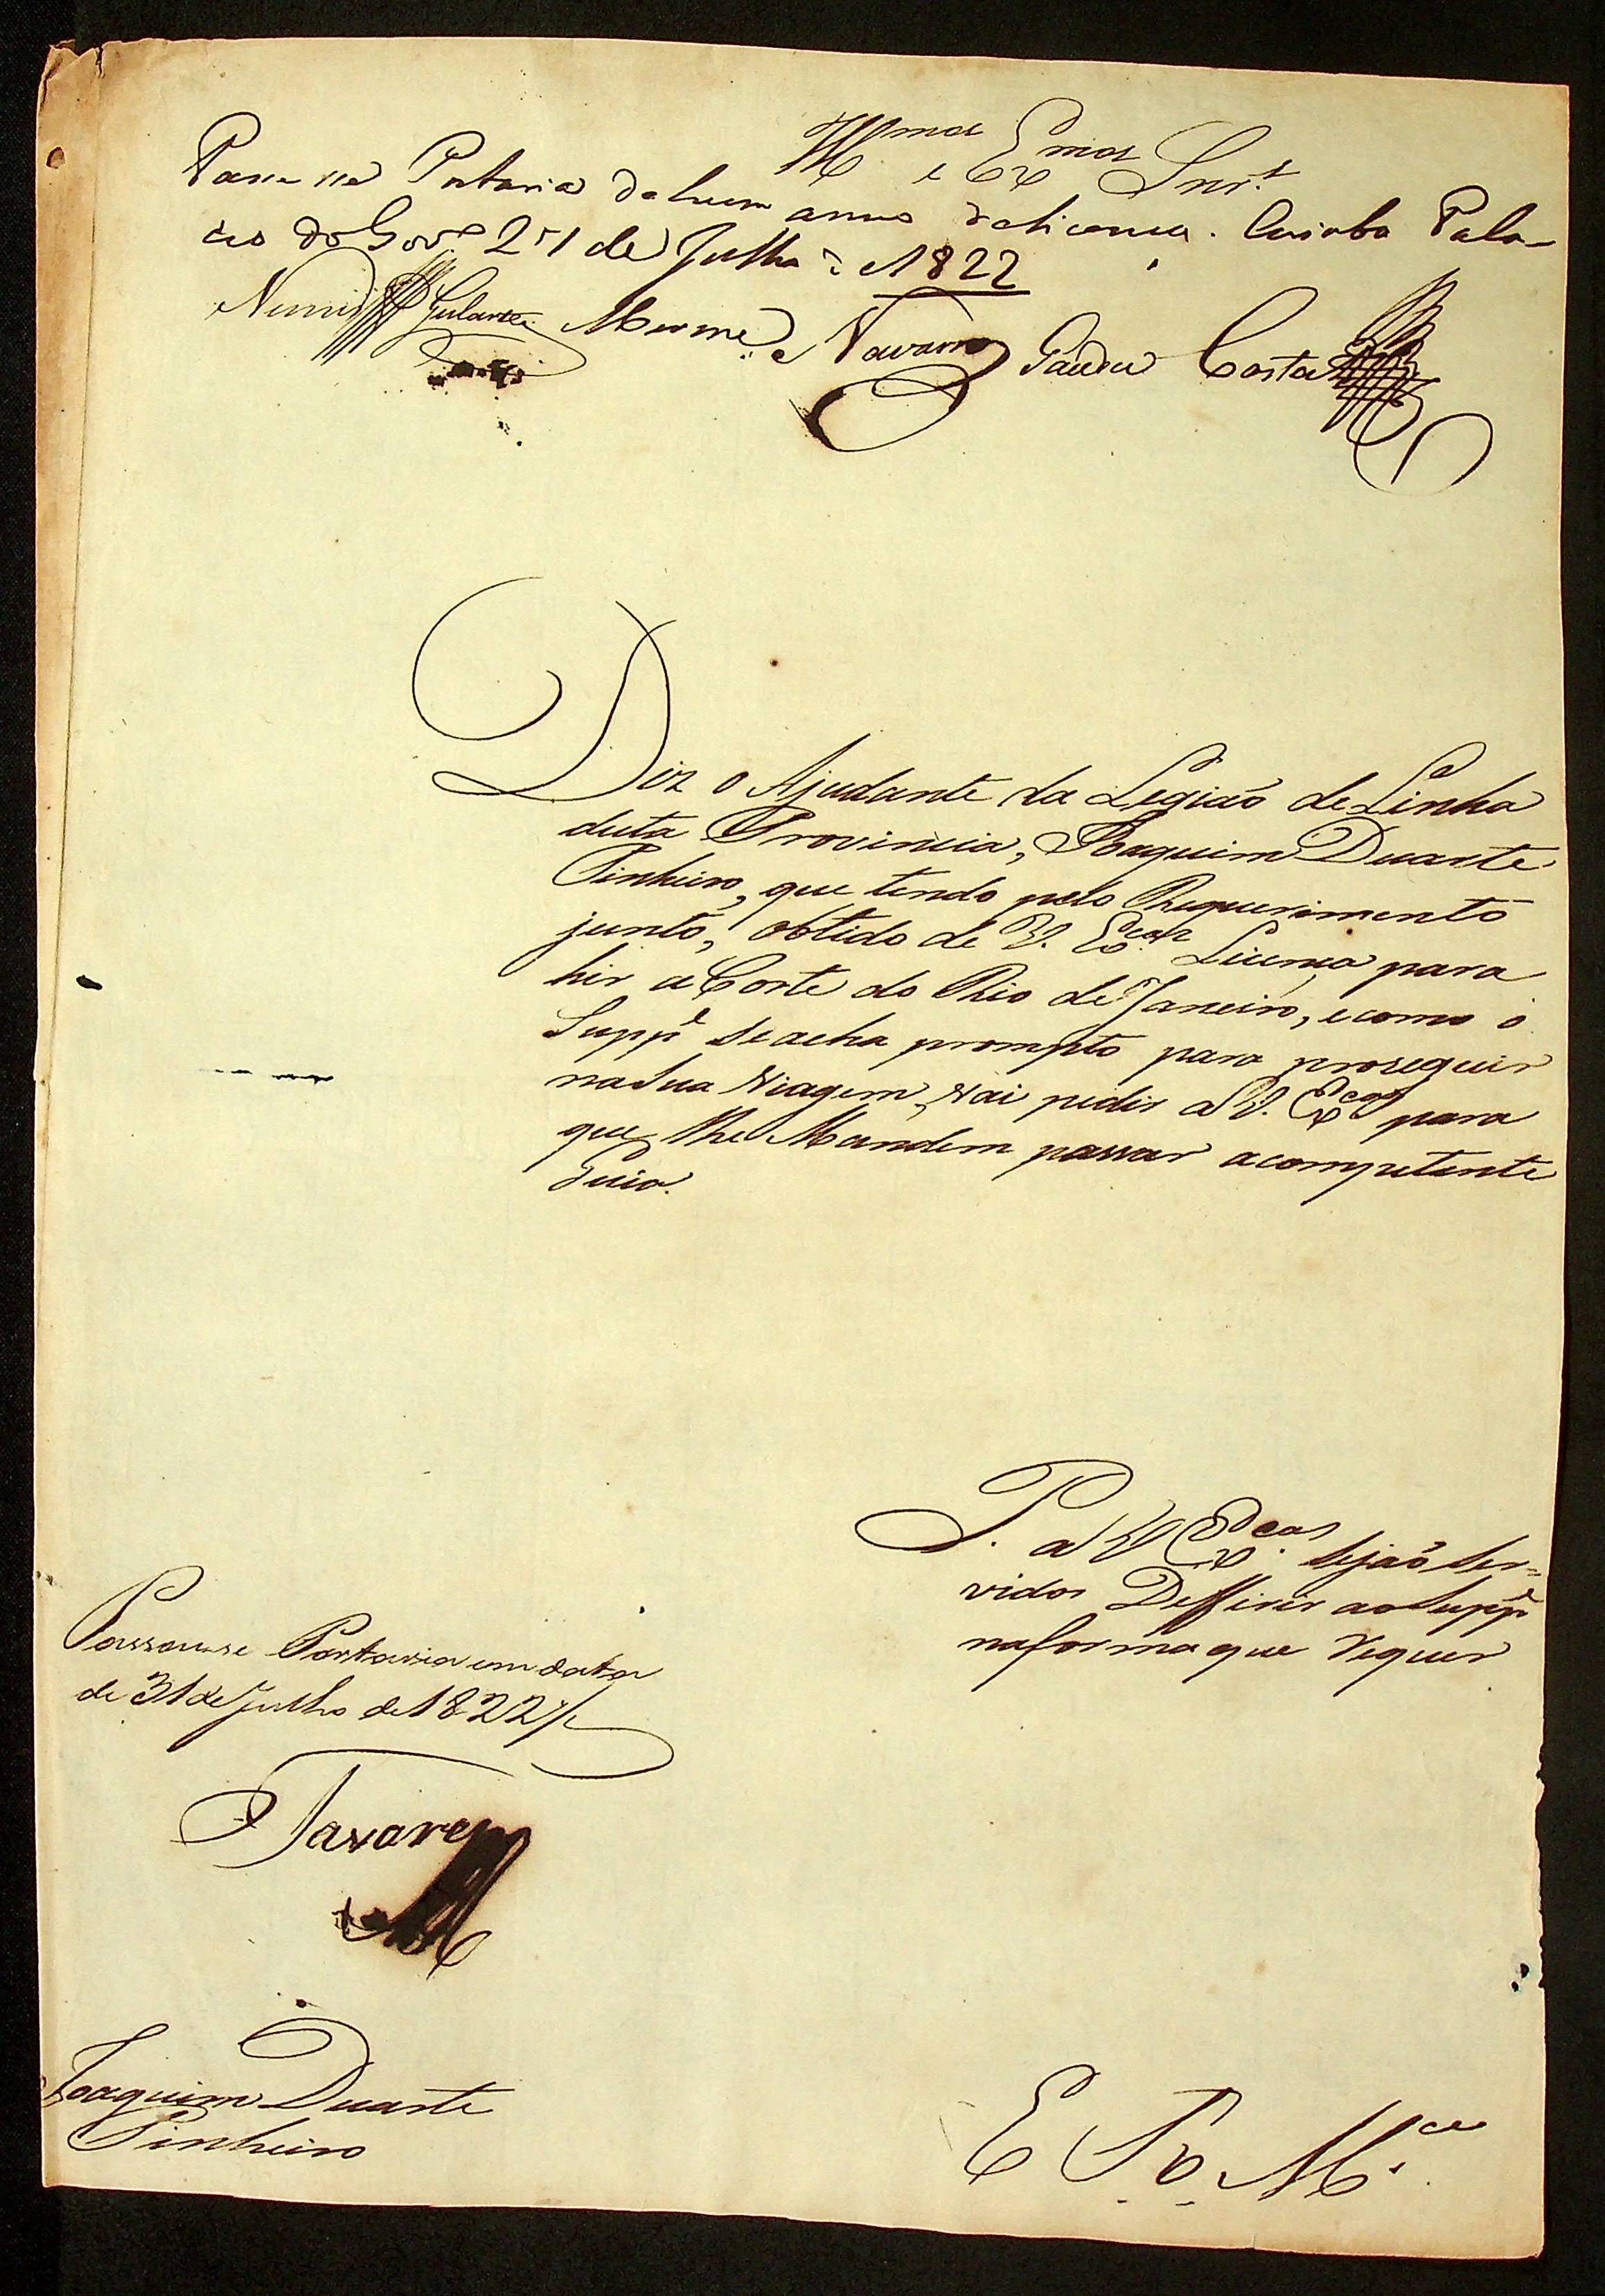 Illmos e Exmos Snrs
Passe se Portaria de hum anno de licença. Cuiaba Pala-
cio do Govo 27 de Julho de 1822
Nunes Gularte Navarro Gaudie Costa
Diz o Ajudante da Legiaõ de Linha
desta Provincia, Joaquim Duarte
Pinheiro, que tendo pelo Requerimento
junto, obtido de V. Excas Licença para
hir a Corte do Rio de Janeiro, e como o
Suppe se acha prompto para proseguir
na sua Viagem, Vai pedir a V. Excas para
que lhe Mandem passar a competente
Guia.
P. a V Excas sejaõ Ser=
vidos Defferir ao Suppe
na forma que requer
Passou-se Portaria em data
de 31 de Julho de 1822
Tavares
Joaquim Duarte
Pinheiro
E R Mce